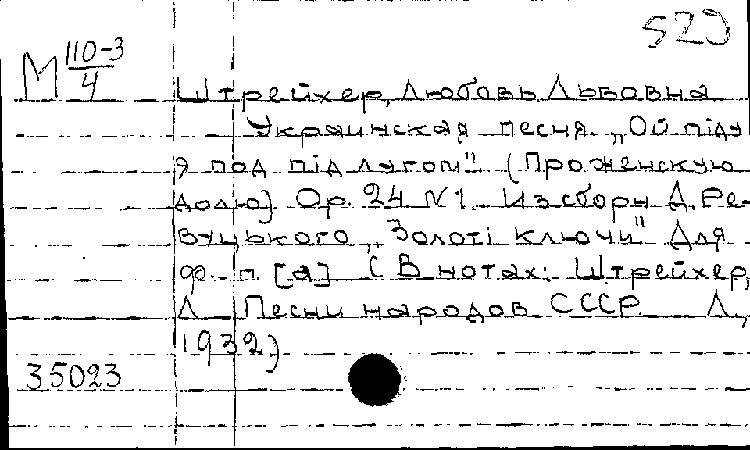 529
М 110-3/4
Штрейхер, Любовь Львовна
Украинская песня „Ой піду
я под під лугом" (Про женскую
долю) Op. 24 N 1. Из сборн Д. Ре-
вуцького „Золоті ключи" Для
ф. п. [a] (В нотах: Штрейхер,
Л Песни народов СССР Л.,
1932)
35023